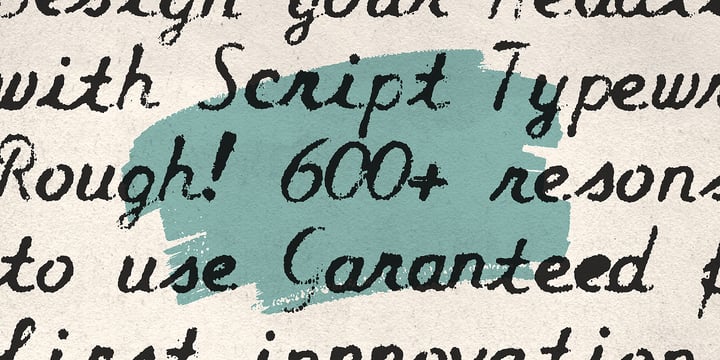 Design your Headli
with Script Typewr
Rough! 600+ resons
to use Garanteed
first innovation